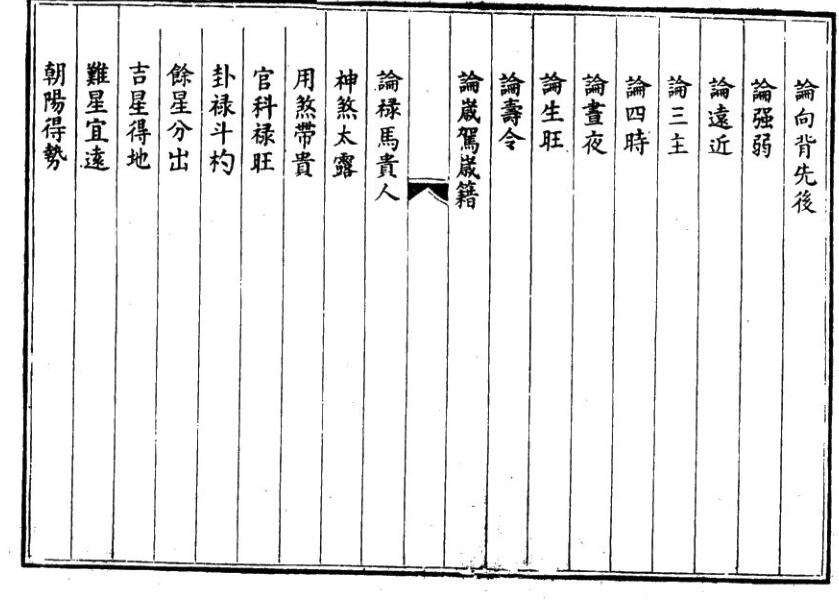 論向背先後
論强弱
論遠近
論三主
論四時
論晝夜
論生旺
論壽令
論嵗駕嵗籍
論禄馬貴人
神煞太露
用煞帶貴
官科禄旺
卦禄斗杓
餘星分出
吉星得地
難星宜逺
朝陽得勢